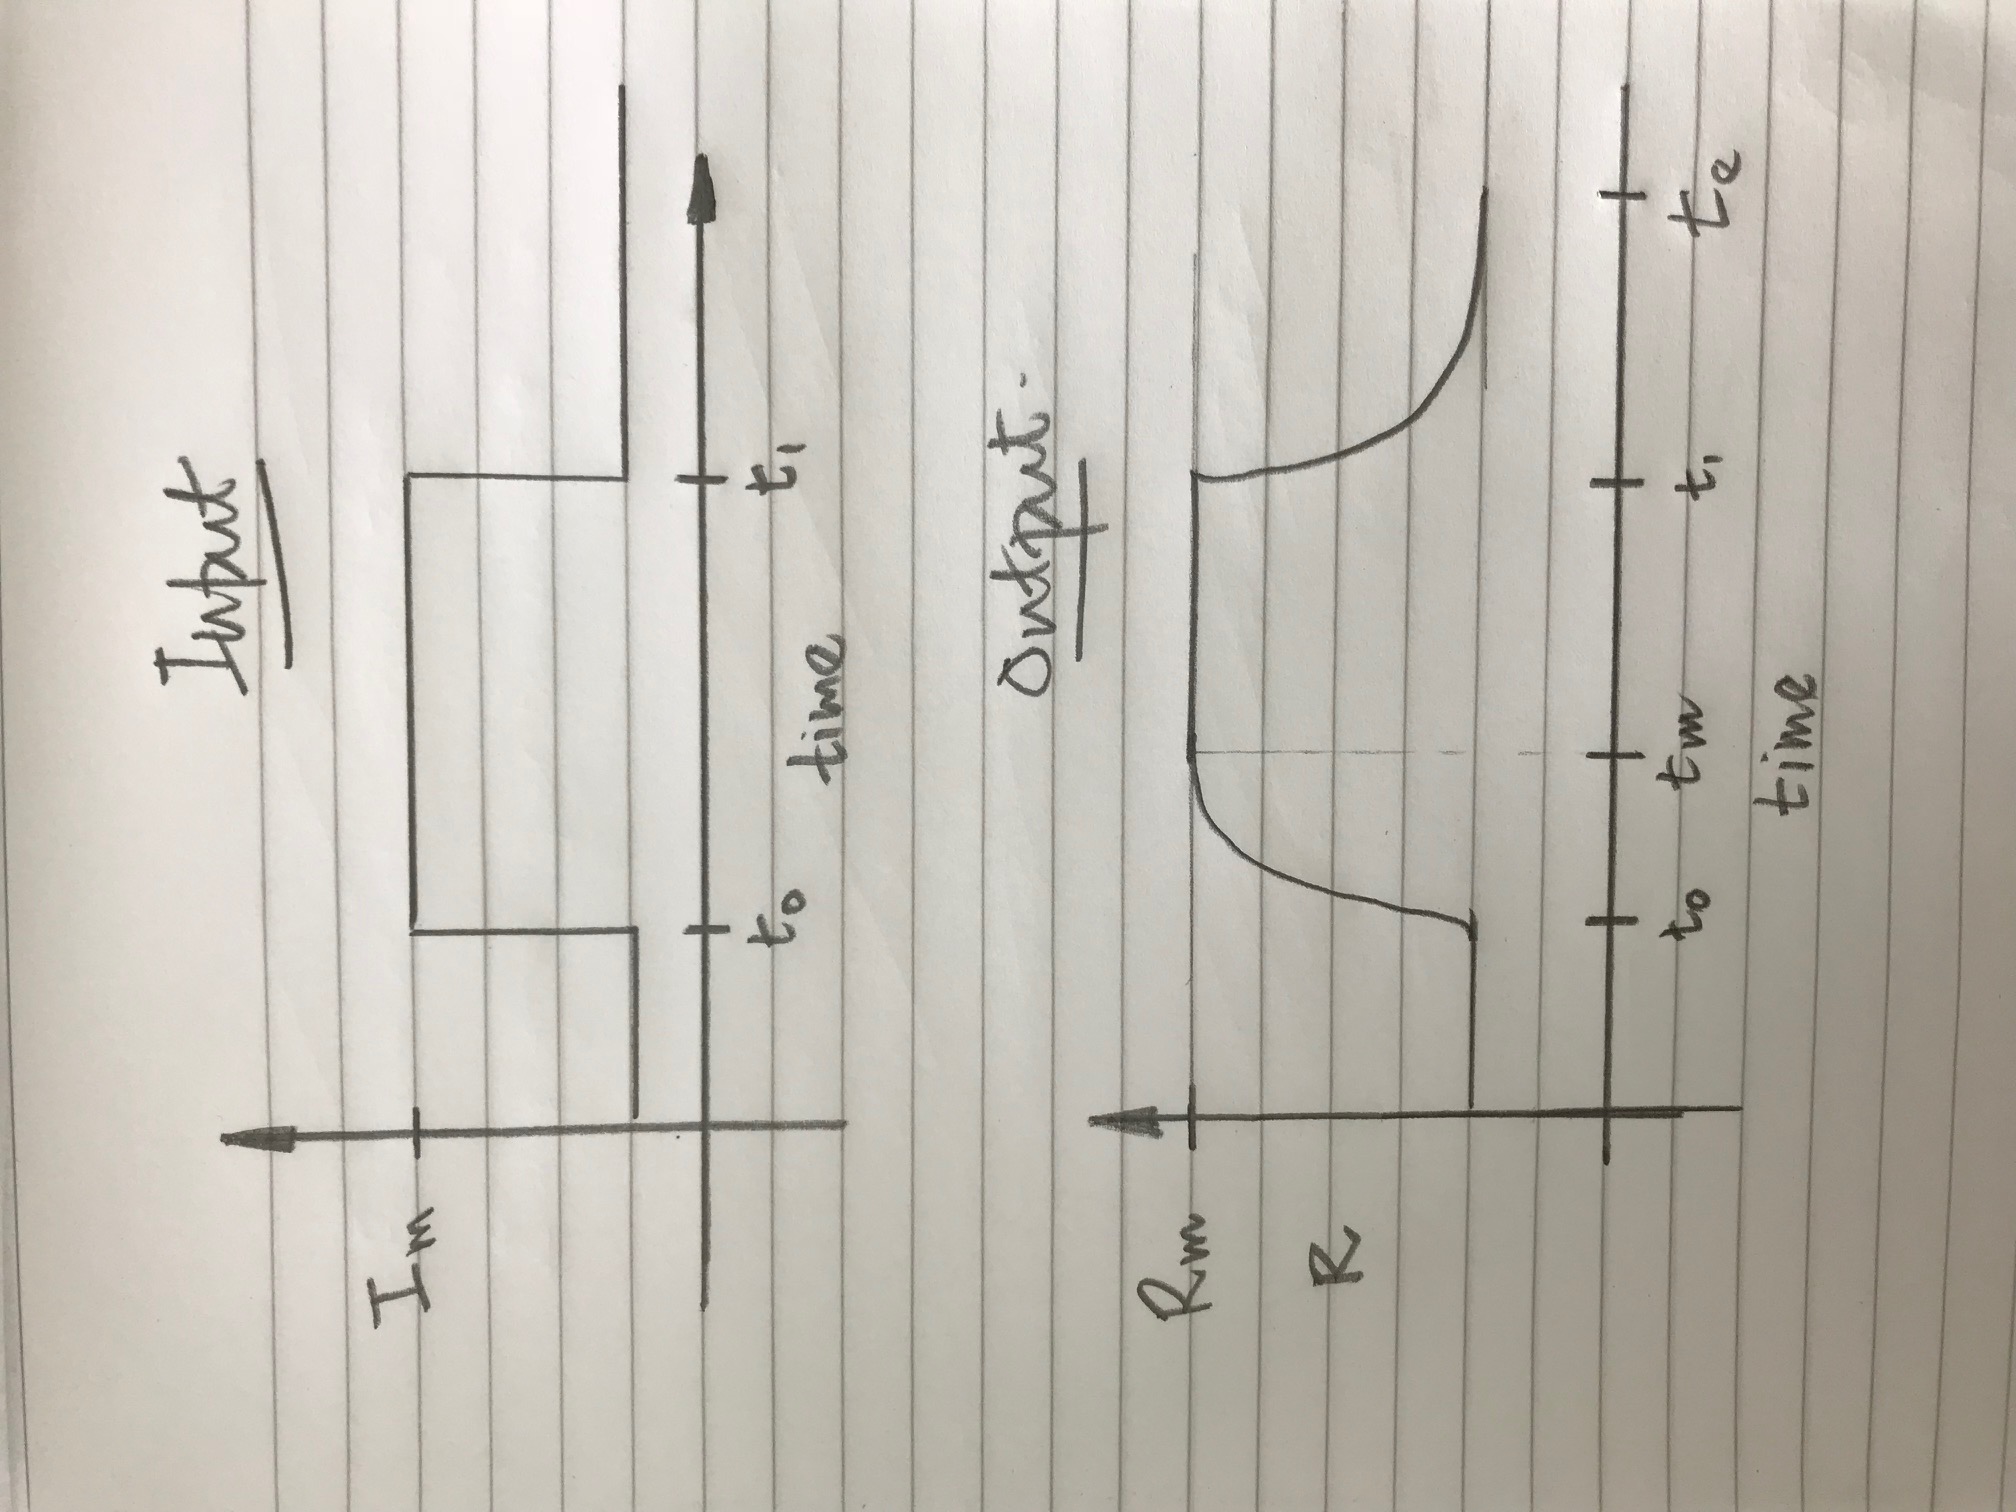 Input
Im
t0
t1
time
Output.
Rm
R
t0
tm
t1
te
time